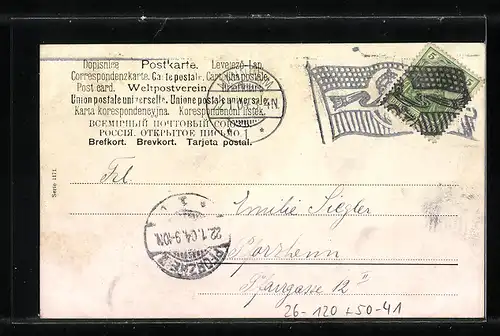 Dopisnice Postkarte. Levelező-Lap.
Correspondenzkarte. Carte postale. Cartolina postale.
Post card. Weltpostverein.
Union postale universelle. Unione postale universale.
Karta korespondencyjna. Korespondenční lístek.
ВСЕМІРНЫЙ ПОЧТОВЫЙ СОЮЗ
РОССІЯ. ОТКРЫТОЕ ПИСЬМО.
Brefkort. Brevkort. Tarjeta postal.
5
Serie 1171.
Frl.
Emilie Siegler
PFORZHEIM
22.1.04.9-10N.
Pforzheim
Pfarrgasse 12 II
26-120+50-41